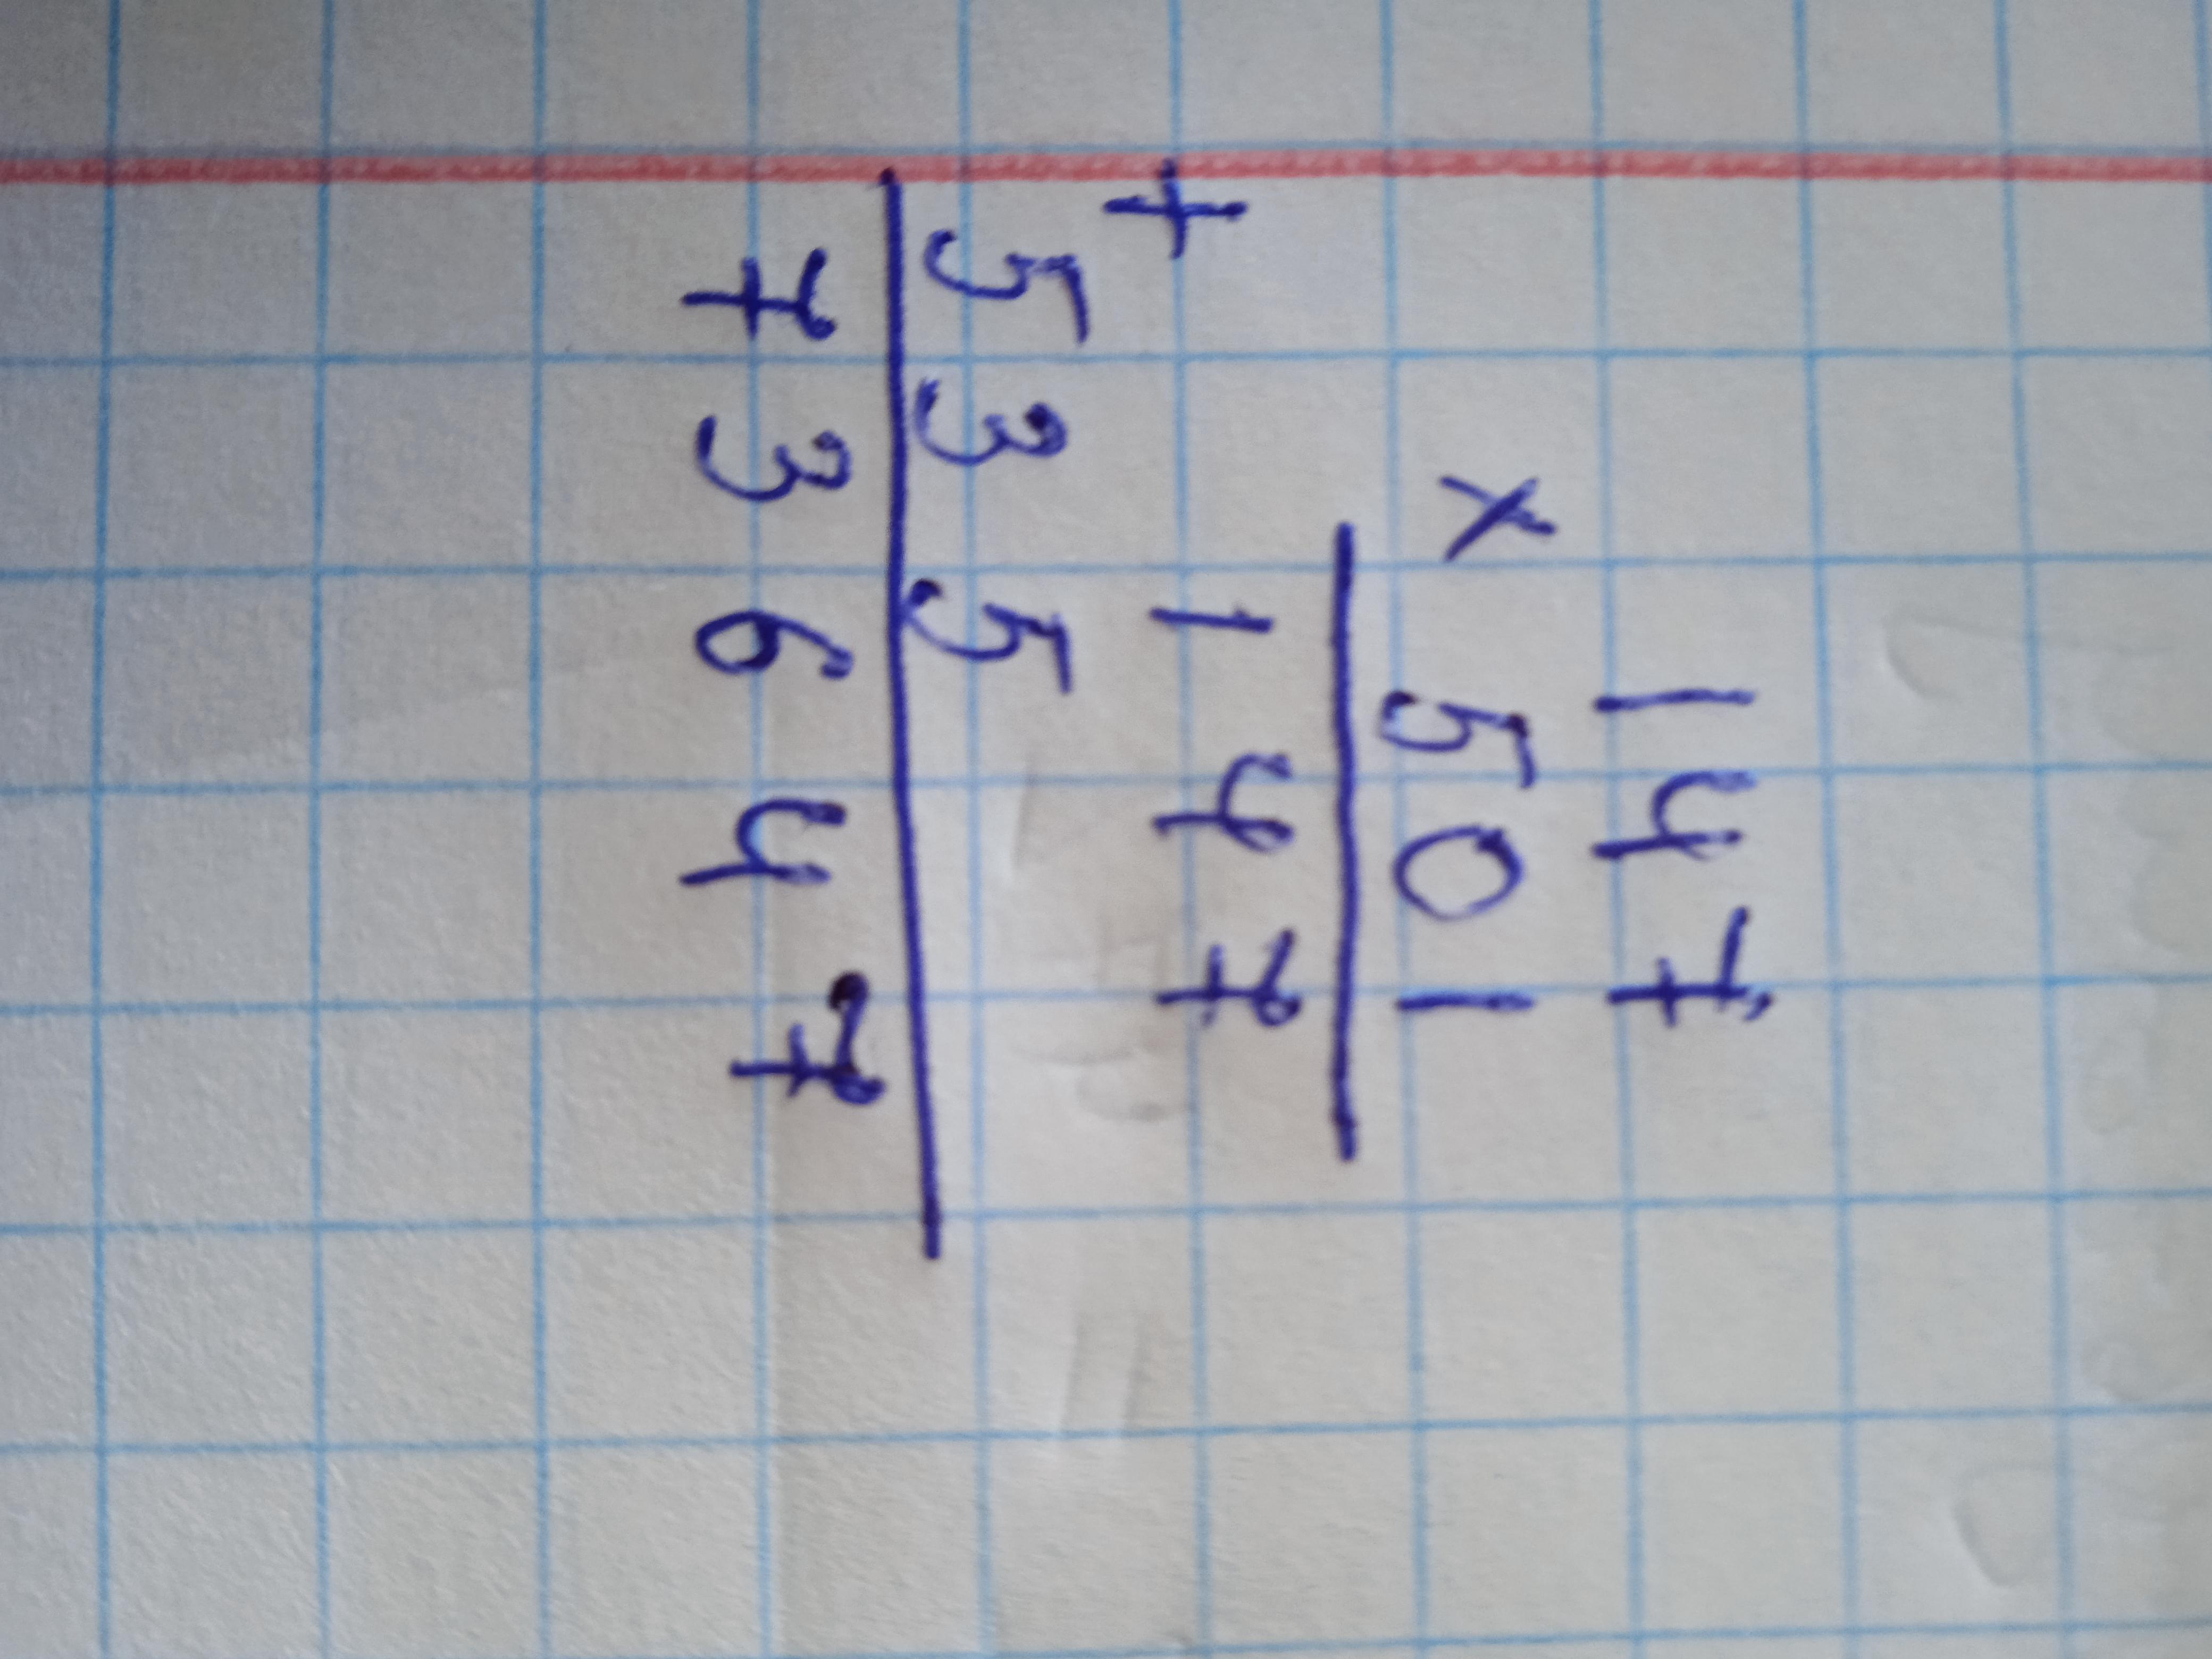 147
× 501
147
+
535
73647